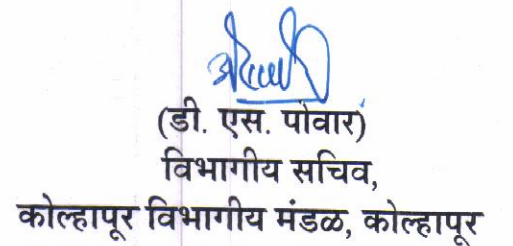 (डी. एस. पोवार)
विभागीय सचिव,
कोल्हापूर विभागीय मंडळ, कोल्हापूर